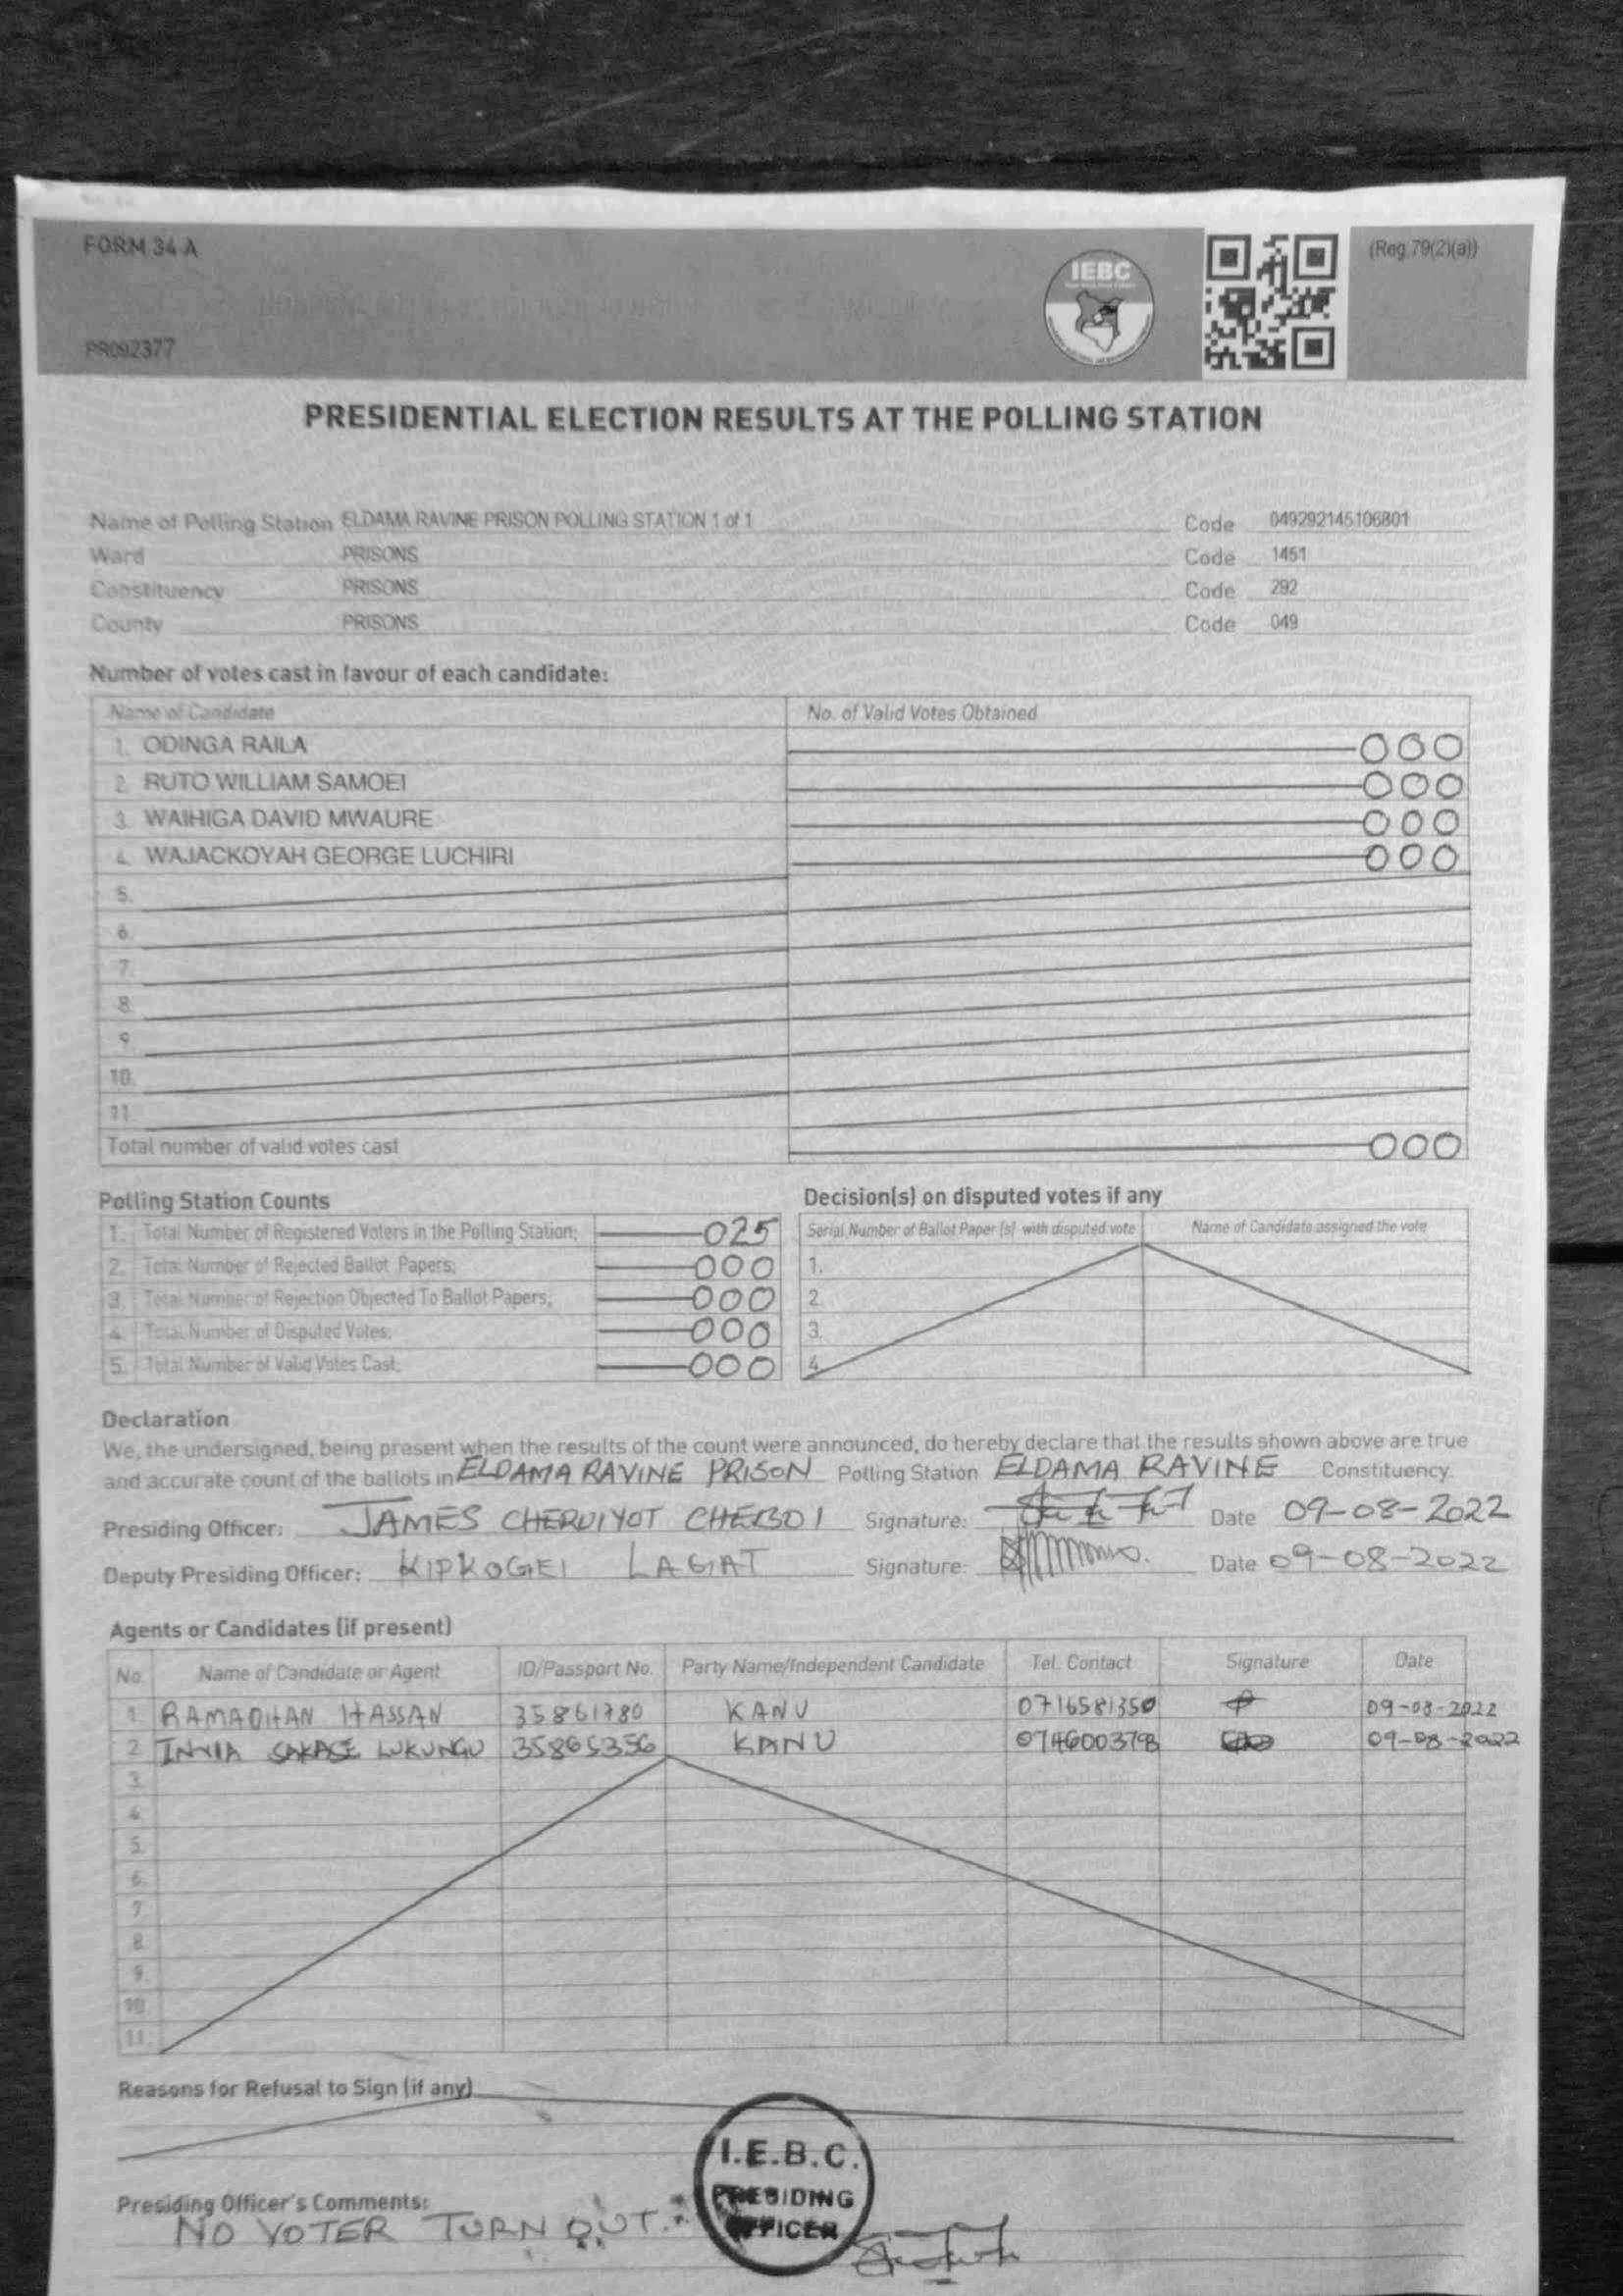 FORM 34 A
IEBC
(Reg 79(2)(a))
PR092377
PRESIDENTIAL ELECTION RESULTS AT THE POLLING STATION
Name of Polling Station ELDAMA RAVINE PRISON POLLING STATION 1 of 1 Code 049292145106801
Ward PRISONS Code 1451
Constituency PRISONS Code 292
County PRISONS Code 049
Number of votes cast in favour of each candidate:
Name of Candidate No. of Valid Votes Obtained
1. ODINGA RAILA 000
2. RUTO WILLIAM SAMOEI 000
3. WAIHIGA DAVID MWAURE 000
4. WAJACKOYAH GEORGE LUCHIRI 000
5.
6.
7.
8.
9.
10.
11.
Total number of valid votes cast 000
Polling Station Counts
1. Total Number of Registered Voters in the Polling Station; 025
2. Total Number of Rejected Ballot Papers; 000
3. Total Number of Rejection Objected To Ballot Papers; 000
4. Total Number of Disputed Votes; 000
5. Total Number of Valid Votes Cast; 000
Decision(s) on disputed votes if any
Serial Number of Ballot Paper (s) with disputed vote Name of Candidate assigned the vote
1.
2.
3.
4.
Declaration
We, the undersigned, being present when the results of the count were announced, do hereby declare that the results shown above are true
and accurate count of the ballots in ELDAMA RAVINE PRISON Polling Station ELDAMA RAVINE Constituency.
Presiding Officer: JAMES CHERUIYOT CHEBOI Signature: Date 09-08-2022
Deputy Presiding Officer: KIPKOGEI LAGAT Signature: Date 09-08-2022
Agents or Candidates (if present)
No. Name of Candidate or Agent ID/Passport No. Party Name/Independent Candidate Tel. Contact Signature Date
1. RAMADHAN HASSAN 35861780 KANU 0716581350 09-08-2022
2. LUKUNGU 35865356 KANU 09-08-2022
3.
4.
5.
6.
7.
8.
9.
10.
11.
Reasons for Refusal to Sign (if any)
I.E.B.C.
PRESIDING
OFFICER
Presiding Officer's Comments:
NO VOTER TURN OUT.